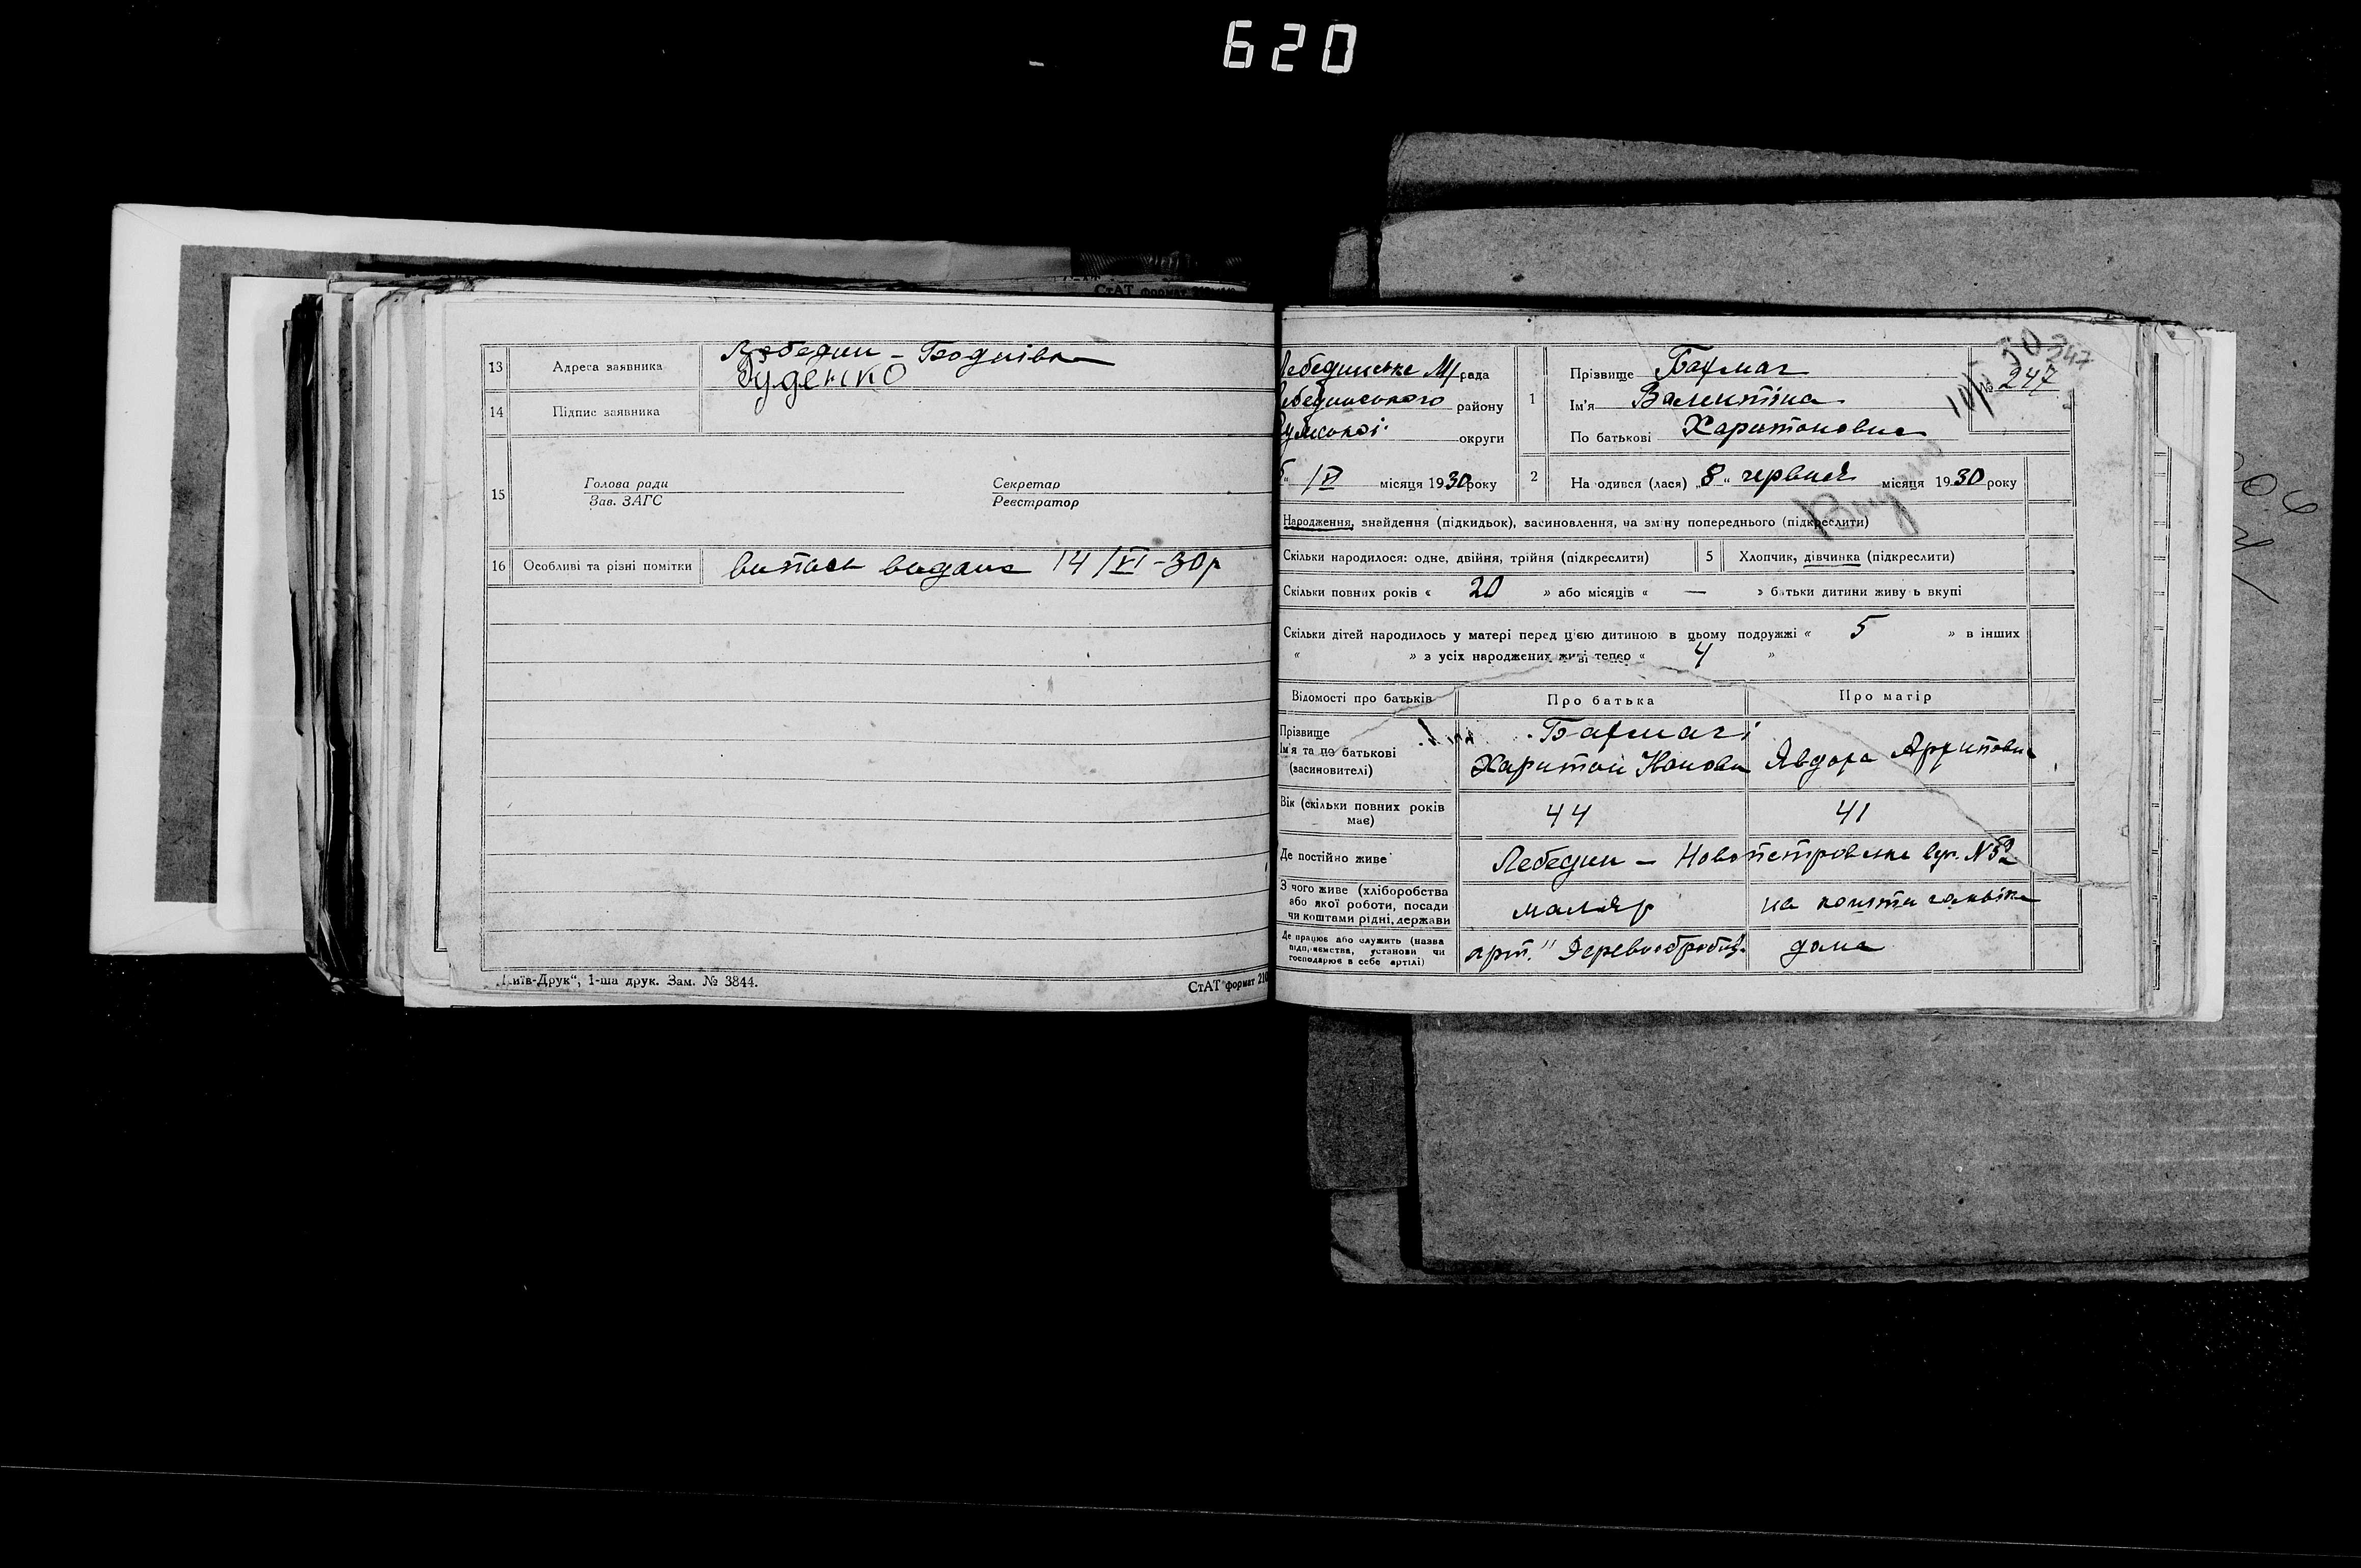 620
СтАТ формат
13 Адреса заявника Лебедин – Боднівка
14 Підпис заявника Руденко
15 Голова ради Секретар
Зав. ЗАГС Реєстратор
16 Особливі та різні помітки випись видана 14/VI–30р
Київ-Друк“, 1-ша друк. Зам. № 3844.
СтАТ формат 210
30 247
Лебединське М/рада
Лебединського району
Сумської округи
/VI місяця 1930 року
1 Прізвище Бахмач
№ 247
Ім'я Валентіна
По батькові Харитоновна
2 На одився (лася) „8“ червня місяця 1930 року
Народження, знайдення (підкидьок), засиновлення, на зміну попереднього (підкреслити)
Скільки народилося: одне, двійня, трійня (підкреслити) 5 Хлопчик, дівчинка (підкреслити)
Скільки повних років « 20 » або місяців « — » батьки дитини живуть вкупі
Скільки дітей народилось у матері перед цією дитиною в цьому подружжі « 5 » в інших
« » з усіх народжених живі тепер « 4 »
Відомості про батьків Про батька Про матір
Прізвище Бахмачі
Ім'я та по батькові Харитон Явдоха Архиповна
(засиновителі)
Вік (скільки повних років має) 44 41
Де постійно живе Лебедин – Новопетровська вул. N 52
З чого живе (хліборобства
або якої роботи, посади
чи коштами рідні, держави маляр на кошти чоловіка
Де працює або служить (назва
підприємства, установи чи
господарює в себе артілі) арт. " Деревообробн. дома